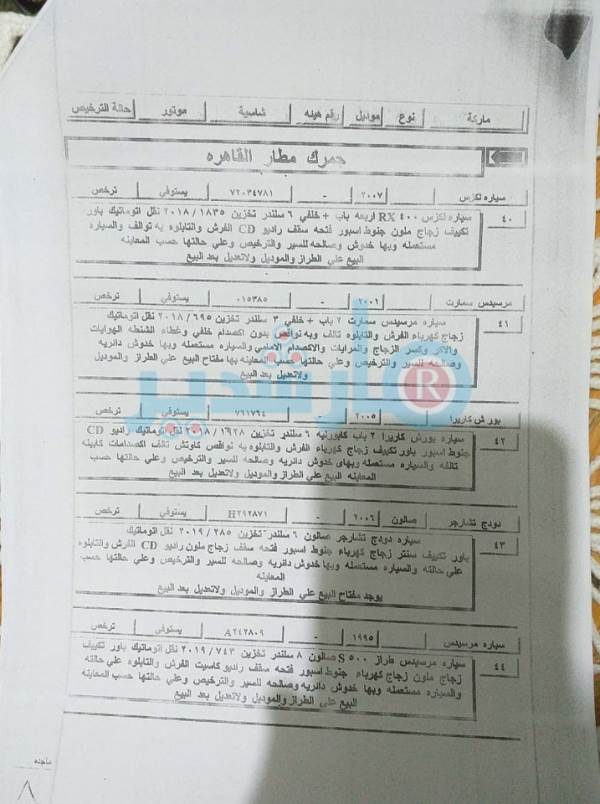 ماركة نوع موديل رقم هيئه شاسية موتور حالة الترخيص
جمرك مطار القاهره
سياره لكزس - ٢٠٠٧ - ٧٢٠٣٤٧٨١ يستوفي ترخص
٤٠
سياره لكزس RX ٤٠٠ اربعه باب + خلفي ٦ سلندر تخزين ١٨٣٥ / ٢٠١٨ نقل اتوماتيك باور
تكييف زجاج ملون جنوط اسبور فتحه سقف راديو CD الفرش والتابلوه به توالف والسياره
مستعمله وبها خدوش وصالحه للسير والترخيص وعلي حالتها حسب المعاينه
البيع علي الطراز والموديل ولاتعديل بعد البيع
مرسيدس سمارت ٢٠٠٦ - ٠١٥٣٨٥ يستوفي ترخص
٤١
سياره مرسيدس سمارت ٢ باب + خلفي ٣ سلندر تخزين ٦٩٥ / ٢٠١٨ نقل اتوماتيك
زجاج كهرباء الفرش والتابلوه تالف وبه نواقص بدون اكصدام خلفي وغطاء الشنطه الهوايات
والاكر وكسر الزجاج والمرايات والاكصدام الامامي والسياره مستعمله وبها خدوش دائريه
وصالحه للسير والترخيص وعلي حالتها حسب المعاينه بها مفتاح البيع علي الطراز والموديل
ولاتعديل بعد البيع
هارشدير ®
بورش كاريرا ٢٠٠٥ - ٧٦١٧٦٤ يستوفي ترخص
٤٢
سياره بورش كاريرا ٢ باب كابورليه ٦ سلندر تخزين ١٦٢٨ / ٢٠١٨ نقل اتوماتيك راديو CD
جنوط اسبور باور تكييف زجاج كهرباء الفرش والتابلوه به نواقص كاوتش تالف اكصدامات كابينه
تالفه والسياره مستعمله وبهاي خدوش دائريه وصالحه للسير والترخيص وعلي حالتها حسب
المعاينه البيع علي الطراز والموديل ولاتعديل بعد البيع
دودج تشارجر صالون ٢٠٠٦ - H٢٩٢٨٧١ يستوفي ترخص
٤٣
سياره دودج تشارجر صالون ٦ سلندر تخزين ٢٨٥ / ٢٠١٩ نقل اتوماتيك
باور تكييف سنتر زجاج كهرباء جنوط اسبور فتحه سقف زجاج ملون راديو CD الفرش والتابلوه
علي حالته والسياره مستعمله وبها خدوش دائريه وصالحه للسير والترخيص وعلي حالتها حسب
المعاينه
يوجد مفتاح البيع علي الطراز والموديل ولاتعديل بعد البيع
سياره مرسيدس - ١٩٩٥ - A٢٤٢٨٠٩ يستوفي ترخص
٤٤
سياره مرسيدس طراز S ٥٠٠ صالون ٨ سلندر تخزين ٧٤٣ / ٢٠١٩ نقل اتوماتيك باور تكييف
زجاج ملون زجاج كهرباء جنوط اسبور فتحه سقف راديو كاسيت الفرش والتابلوه علي حالته
والسياره مستعمله وبها خدوش دائريه وصالحه للسير والترخيص وعلي حالتها حسب المعاينه
البيع علي الطراز والموديل ولاتعديل بعد البيع
ماجده
٨